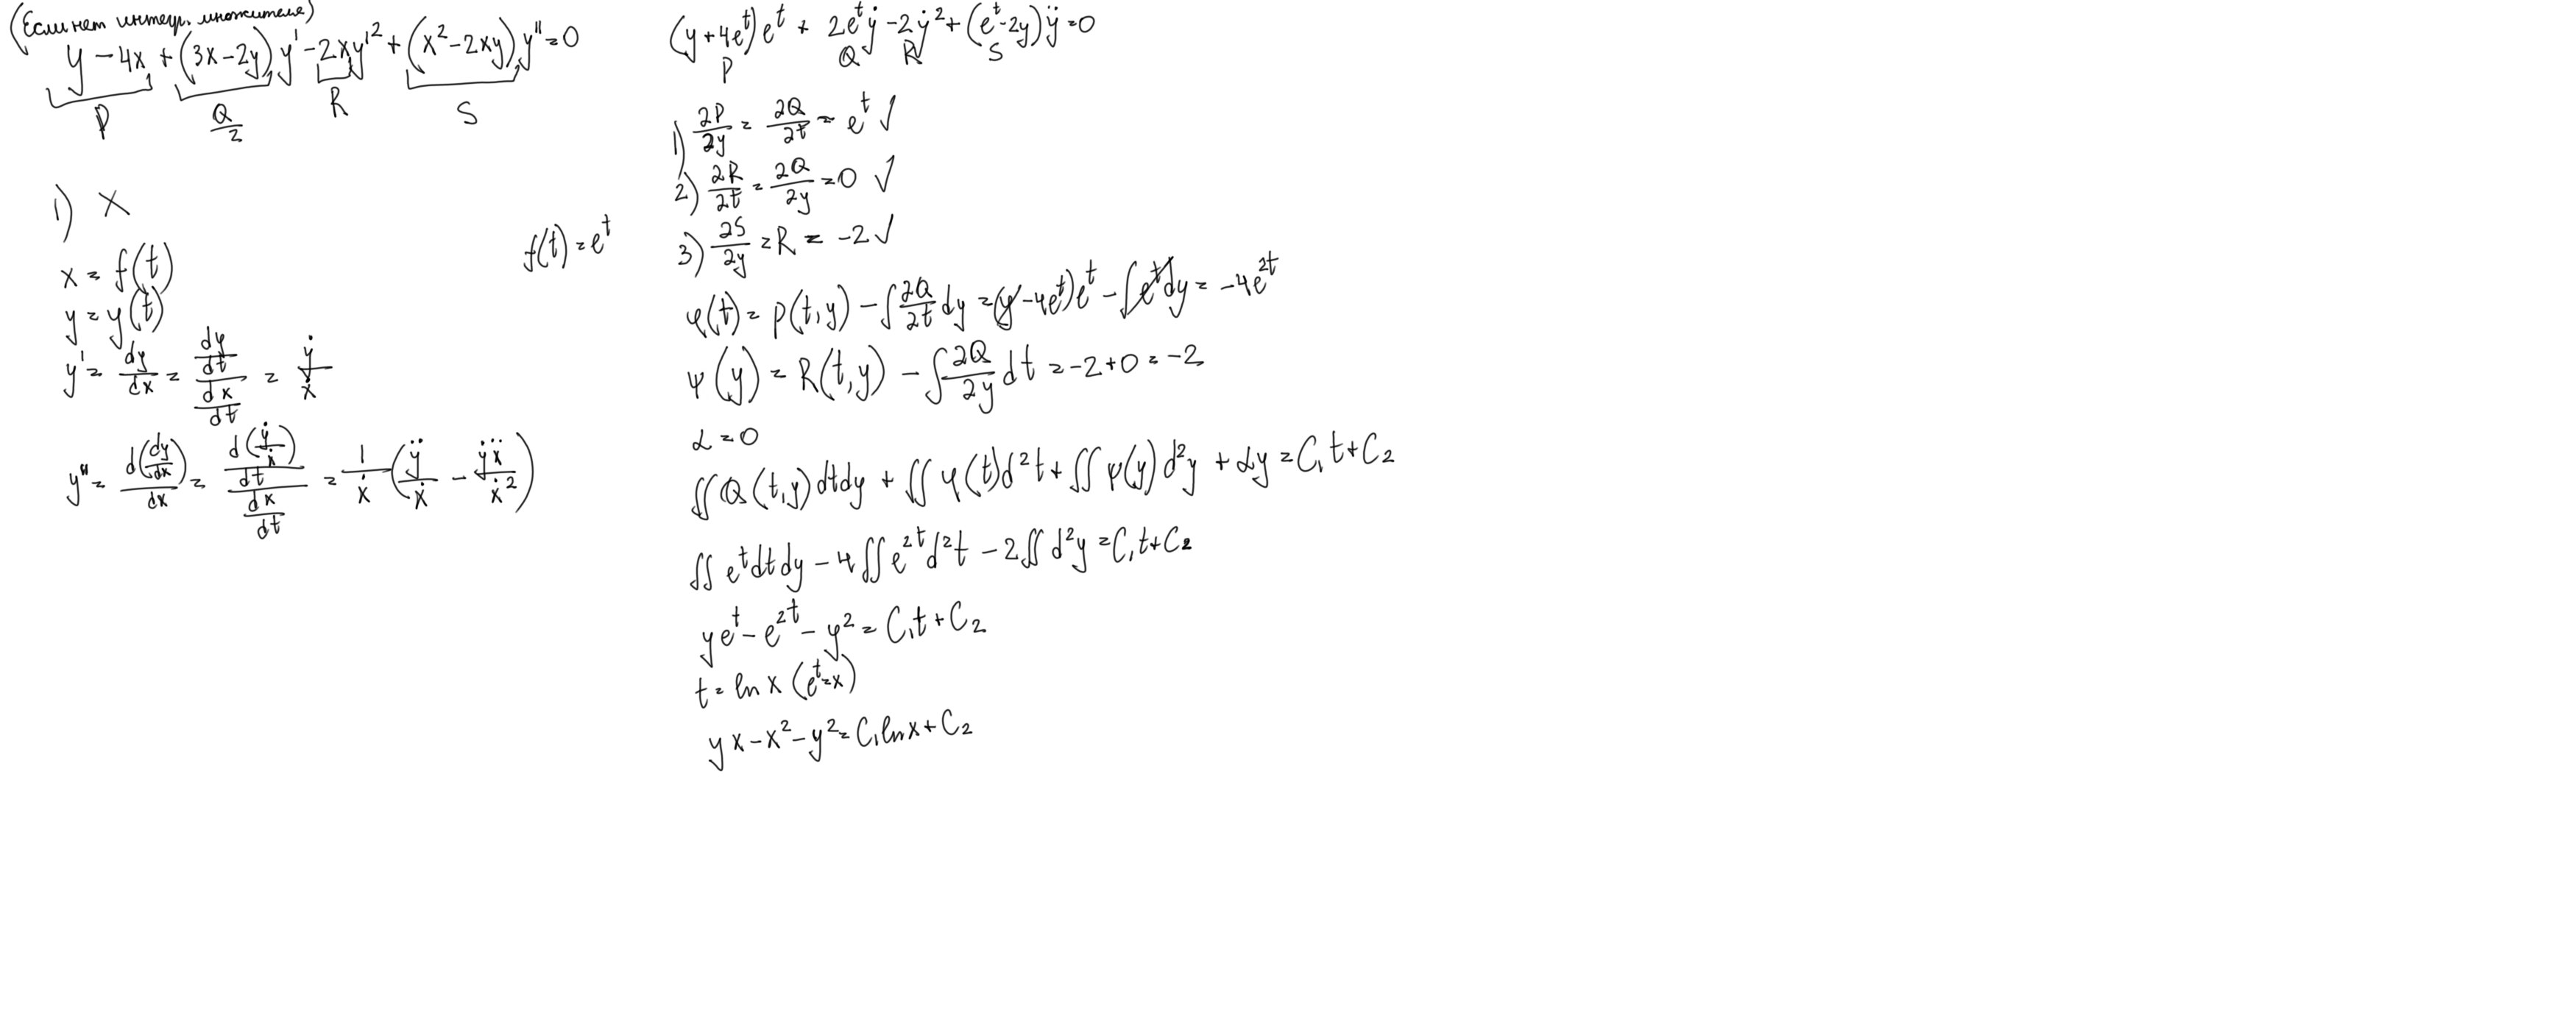 (Если нет интегр. множителя)
y - 4x + (3x - 2y) y' - 2xy'² + (x² - 2xy) y'' = 0
P Q/2 R S
1) X
x = f(t)
y = y(t)
y' = dy/dx = (dy/dt)/(dx/dt) = ẏ/ẋ
y'' = d(dy/dx)/dx = (d(ẏ/ẋ)/dt)/(dx/dt) = 1/ẋ (ÿ/ẋ - ẏẍ/ẋ²)
f(t) = e^t
(y + 4e^t) e^t + 2e^t ẏ - 2ẏ² + (e^t - 2y) ÿ = 0
P Q R S
1) ∂P/∂y = ∂Q/∂t = e^t ✓
2) ∂R/∂t = ∂Q/∂y = 0 ✓
3) ∂S/∂y = R = -2 ✓
φ(t) = P(t,y) - ∫ ∂Q/∂t dy = (y - 4e^t) e^t - ∫ e^t dy = -4e^{2t}
ψ(y) = R(t,y) - ∫ ∂Q/∂y dt = -2 + 0 = -2
α = 0
∬ Q(t,y) dt dy + ∬ φ(t) d²t + ∬ ψ(y) d²y + αy = C₁t + C₂
∬ e^t dt dy - 4 ∬ e^{2t} d²t - 2 ∬ d²y = C₁t + C₂
ye^t - e^{2t} - y² = C₁t + C₂
t = ln x (e^t = x)
yx - x² - y² = C₁ ln x + C₂